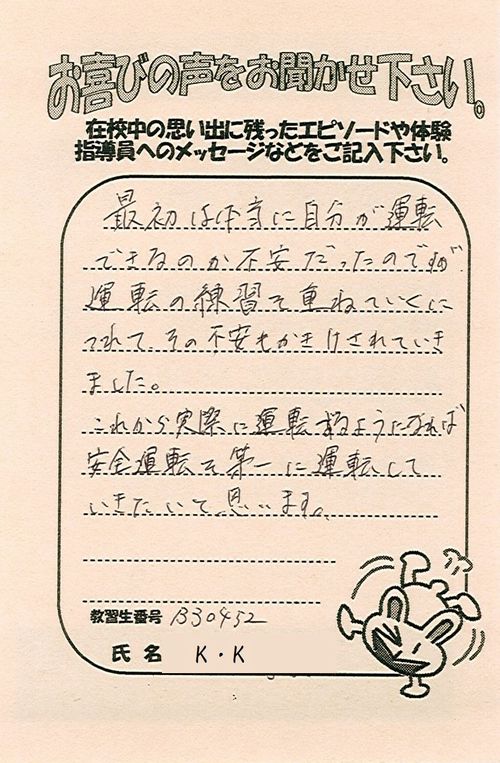 お喜びの声をお聞かせ下さい。
在校中の思い出に残ったエピソードや体験
指導員へのメッセージなどをご記入下さい。
最初は本当に自分が運転
できるのか不安だったのですが
運転の練習を重ねていくに
つれて、その不安もかきけされていき
ました。
これから実際に運転するようになれば
安全運転を第一に運転して
いきたいて思います。
教習生番号 B30432
氏名 K・K